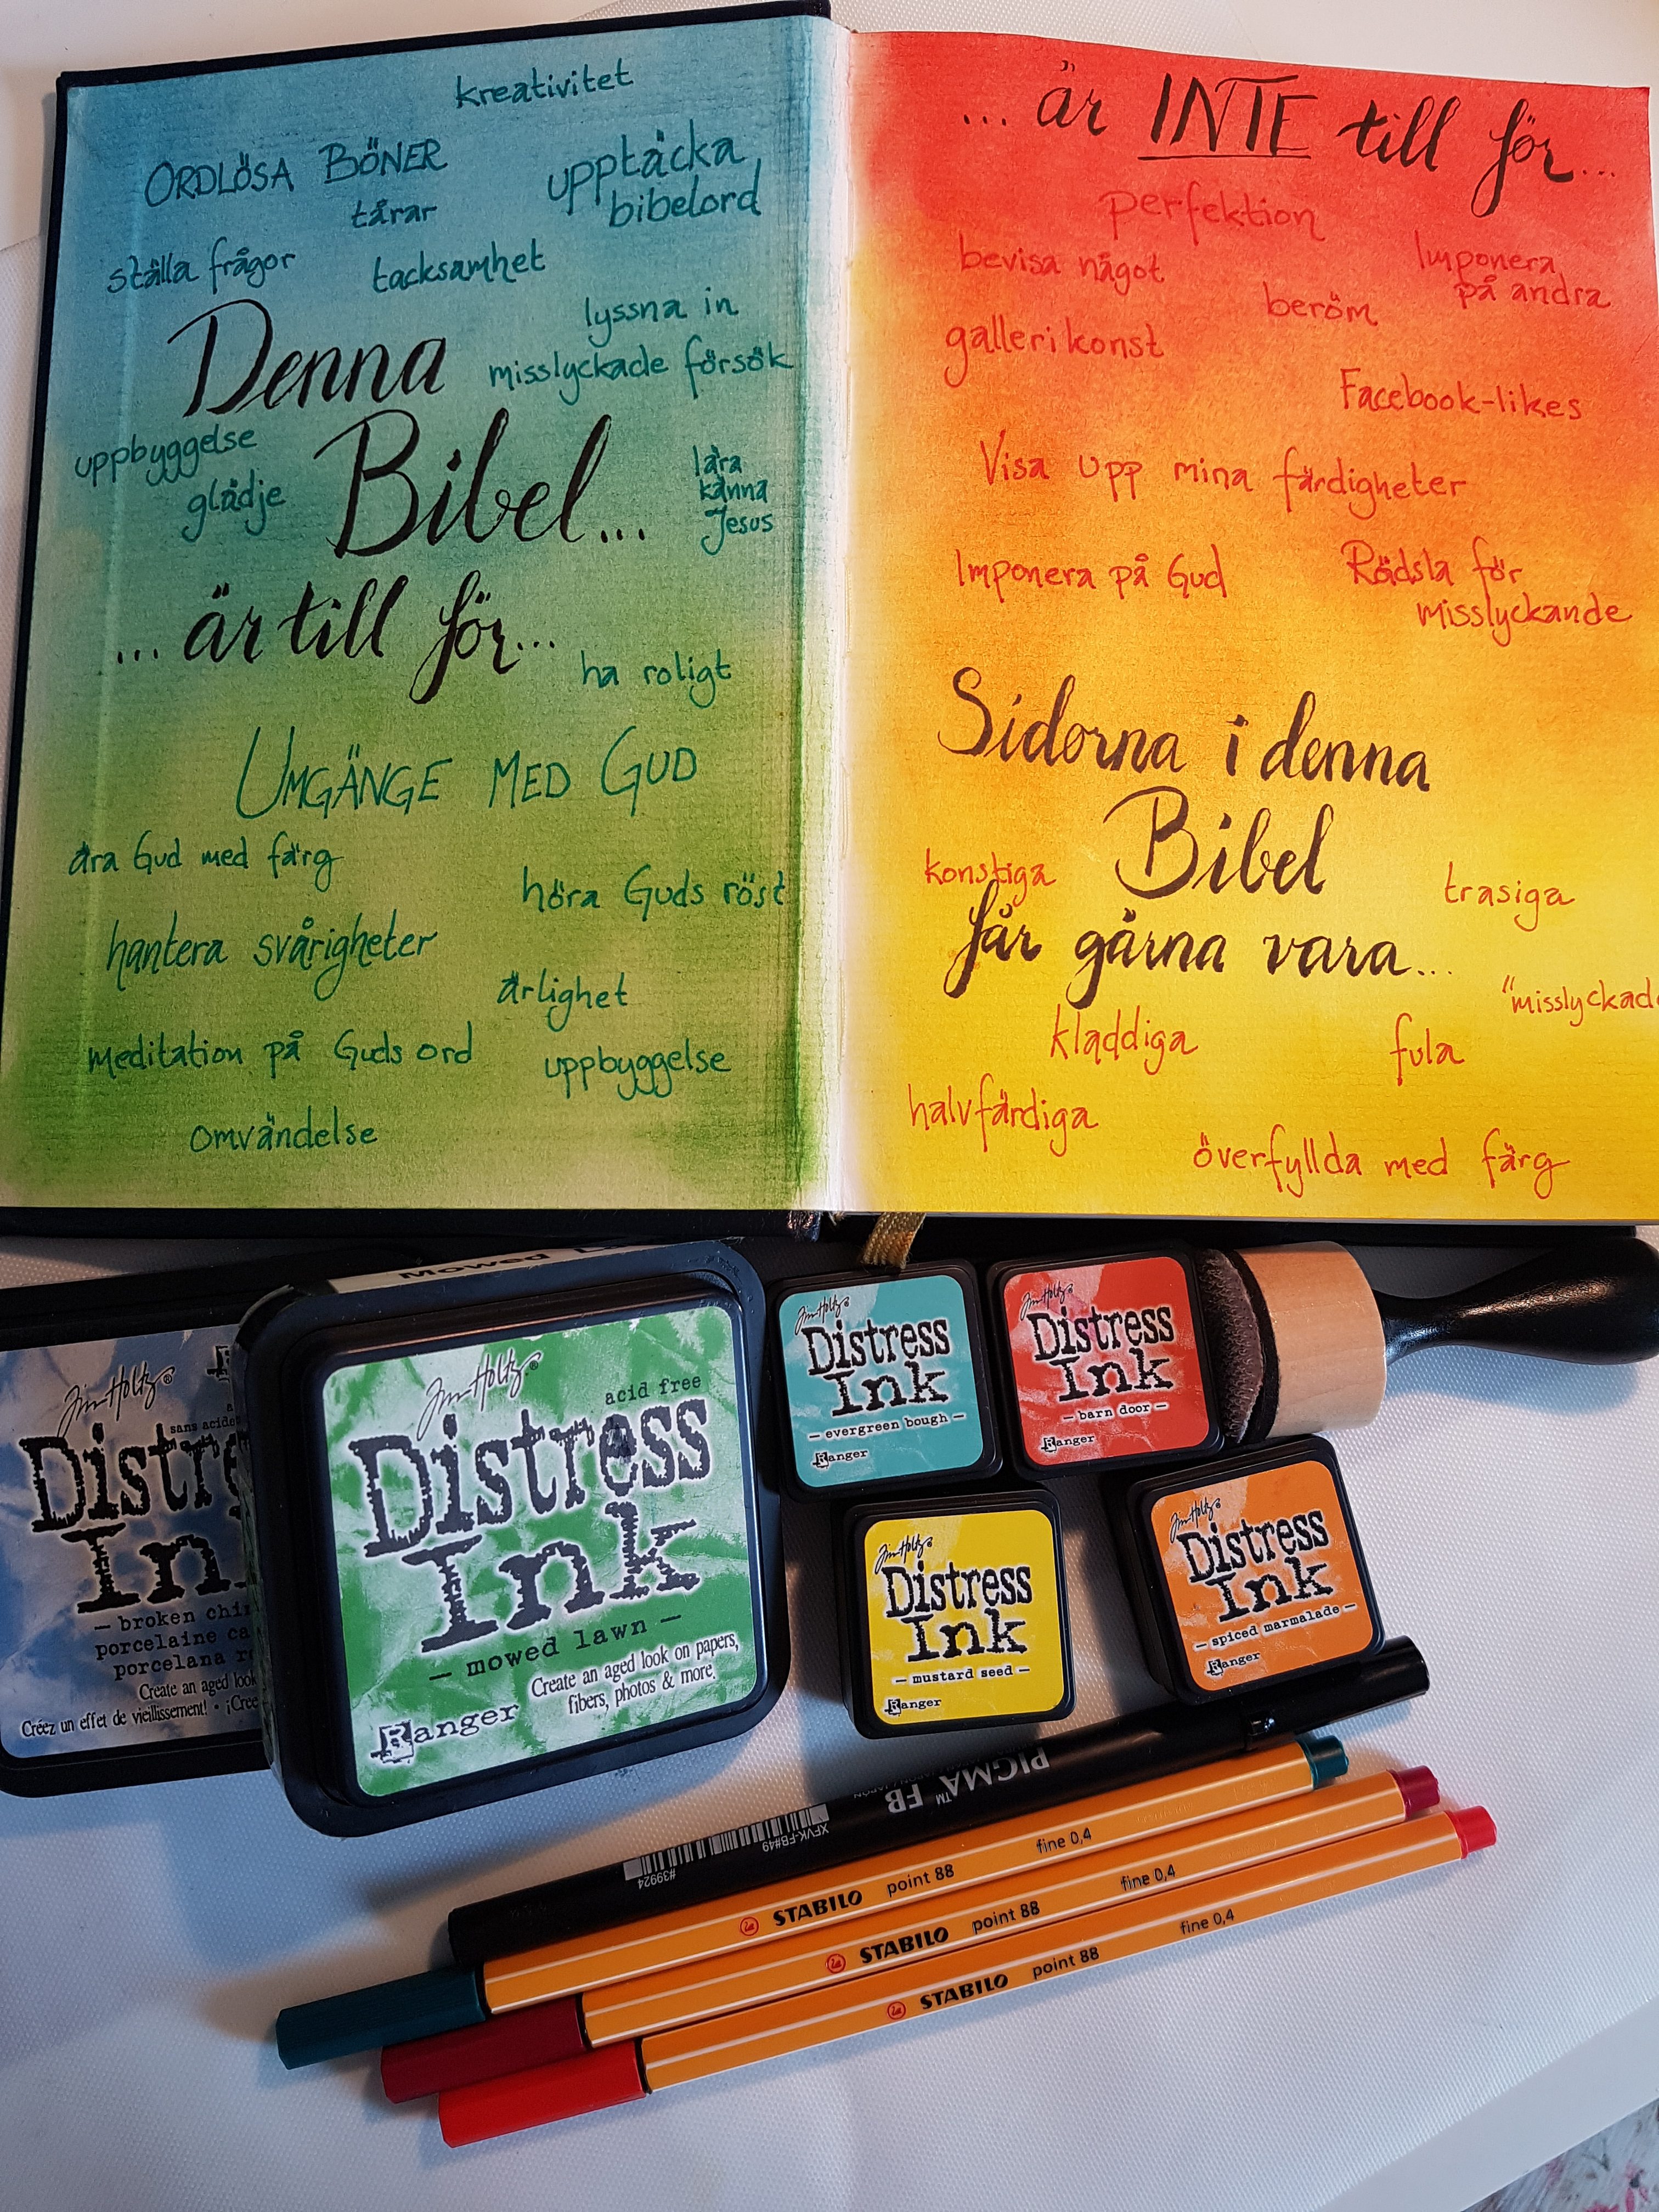 kreativitet
ORDLÖSA BÖNER
upptäcka
bibelord
tårar
ställa frågor
tacksamhet
lyssna in
Denna
misslyckade försök
uppbyggelse
glädje
Bibel...
lära
känna
Jesus
... är till för...
ha roligt
UMGÄNGE MED GUD
ära Gud med färg
höra Guds röst
hantera svårigheter
ärlighet
meditation på Guds ord
uppbyggelse
omvändelse
... är INTE till för...
perfektion
bevisa något
Imponera
på andra
beröm
gallerikonst
Facebook-likes
Visa upp mina färdigheter
Imponera på Gud
Rädsla för
misslyckande
Sidorna i denna
Bibel
konstiga
trasiga
får gärna vara...
"misslyckad
kladdiga
fula
halvfärdiga
överfyllda med färg
Tim Holtz®
sans acide
Distre
In
— broken chi
porcelaine ca
porcelana r
Create an aged look
Créez un effet de vieillissement! • ¡Cree
Mowed
Tim Holtz®
acid free
Distress
Ink
— mowed lawn —
Create an aged look on papers,
fibers, photos & more.
Ranger
Tim Holtz®
Distress
Ink
— evergreen bough —
Ranger
Tim Holtz®
Distress
Ink
— barn door —
Ranger
Tim Holtz®
Distress
Ink
— mustard seed —
Ranger
Tim Holtz®
Distress
Ink
— spiced marmalade —
Ranger
PIGMA™ FB
XFVK-FB#49
#39924
STABILO point 88 fine 0,4
STABILO point 88 fine 0,4
STABILO point 88 fine 0,4